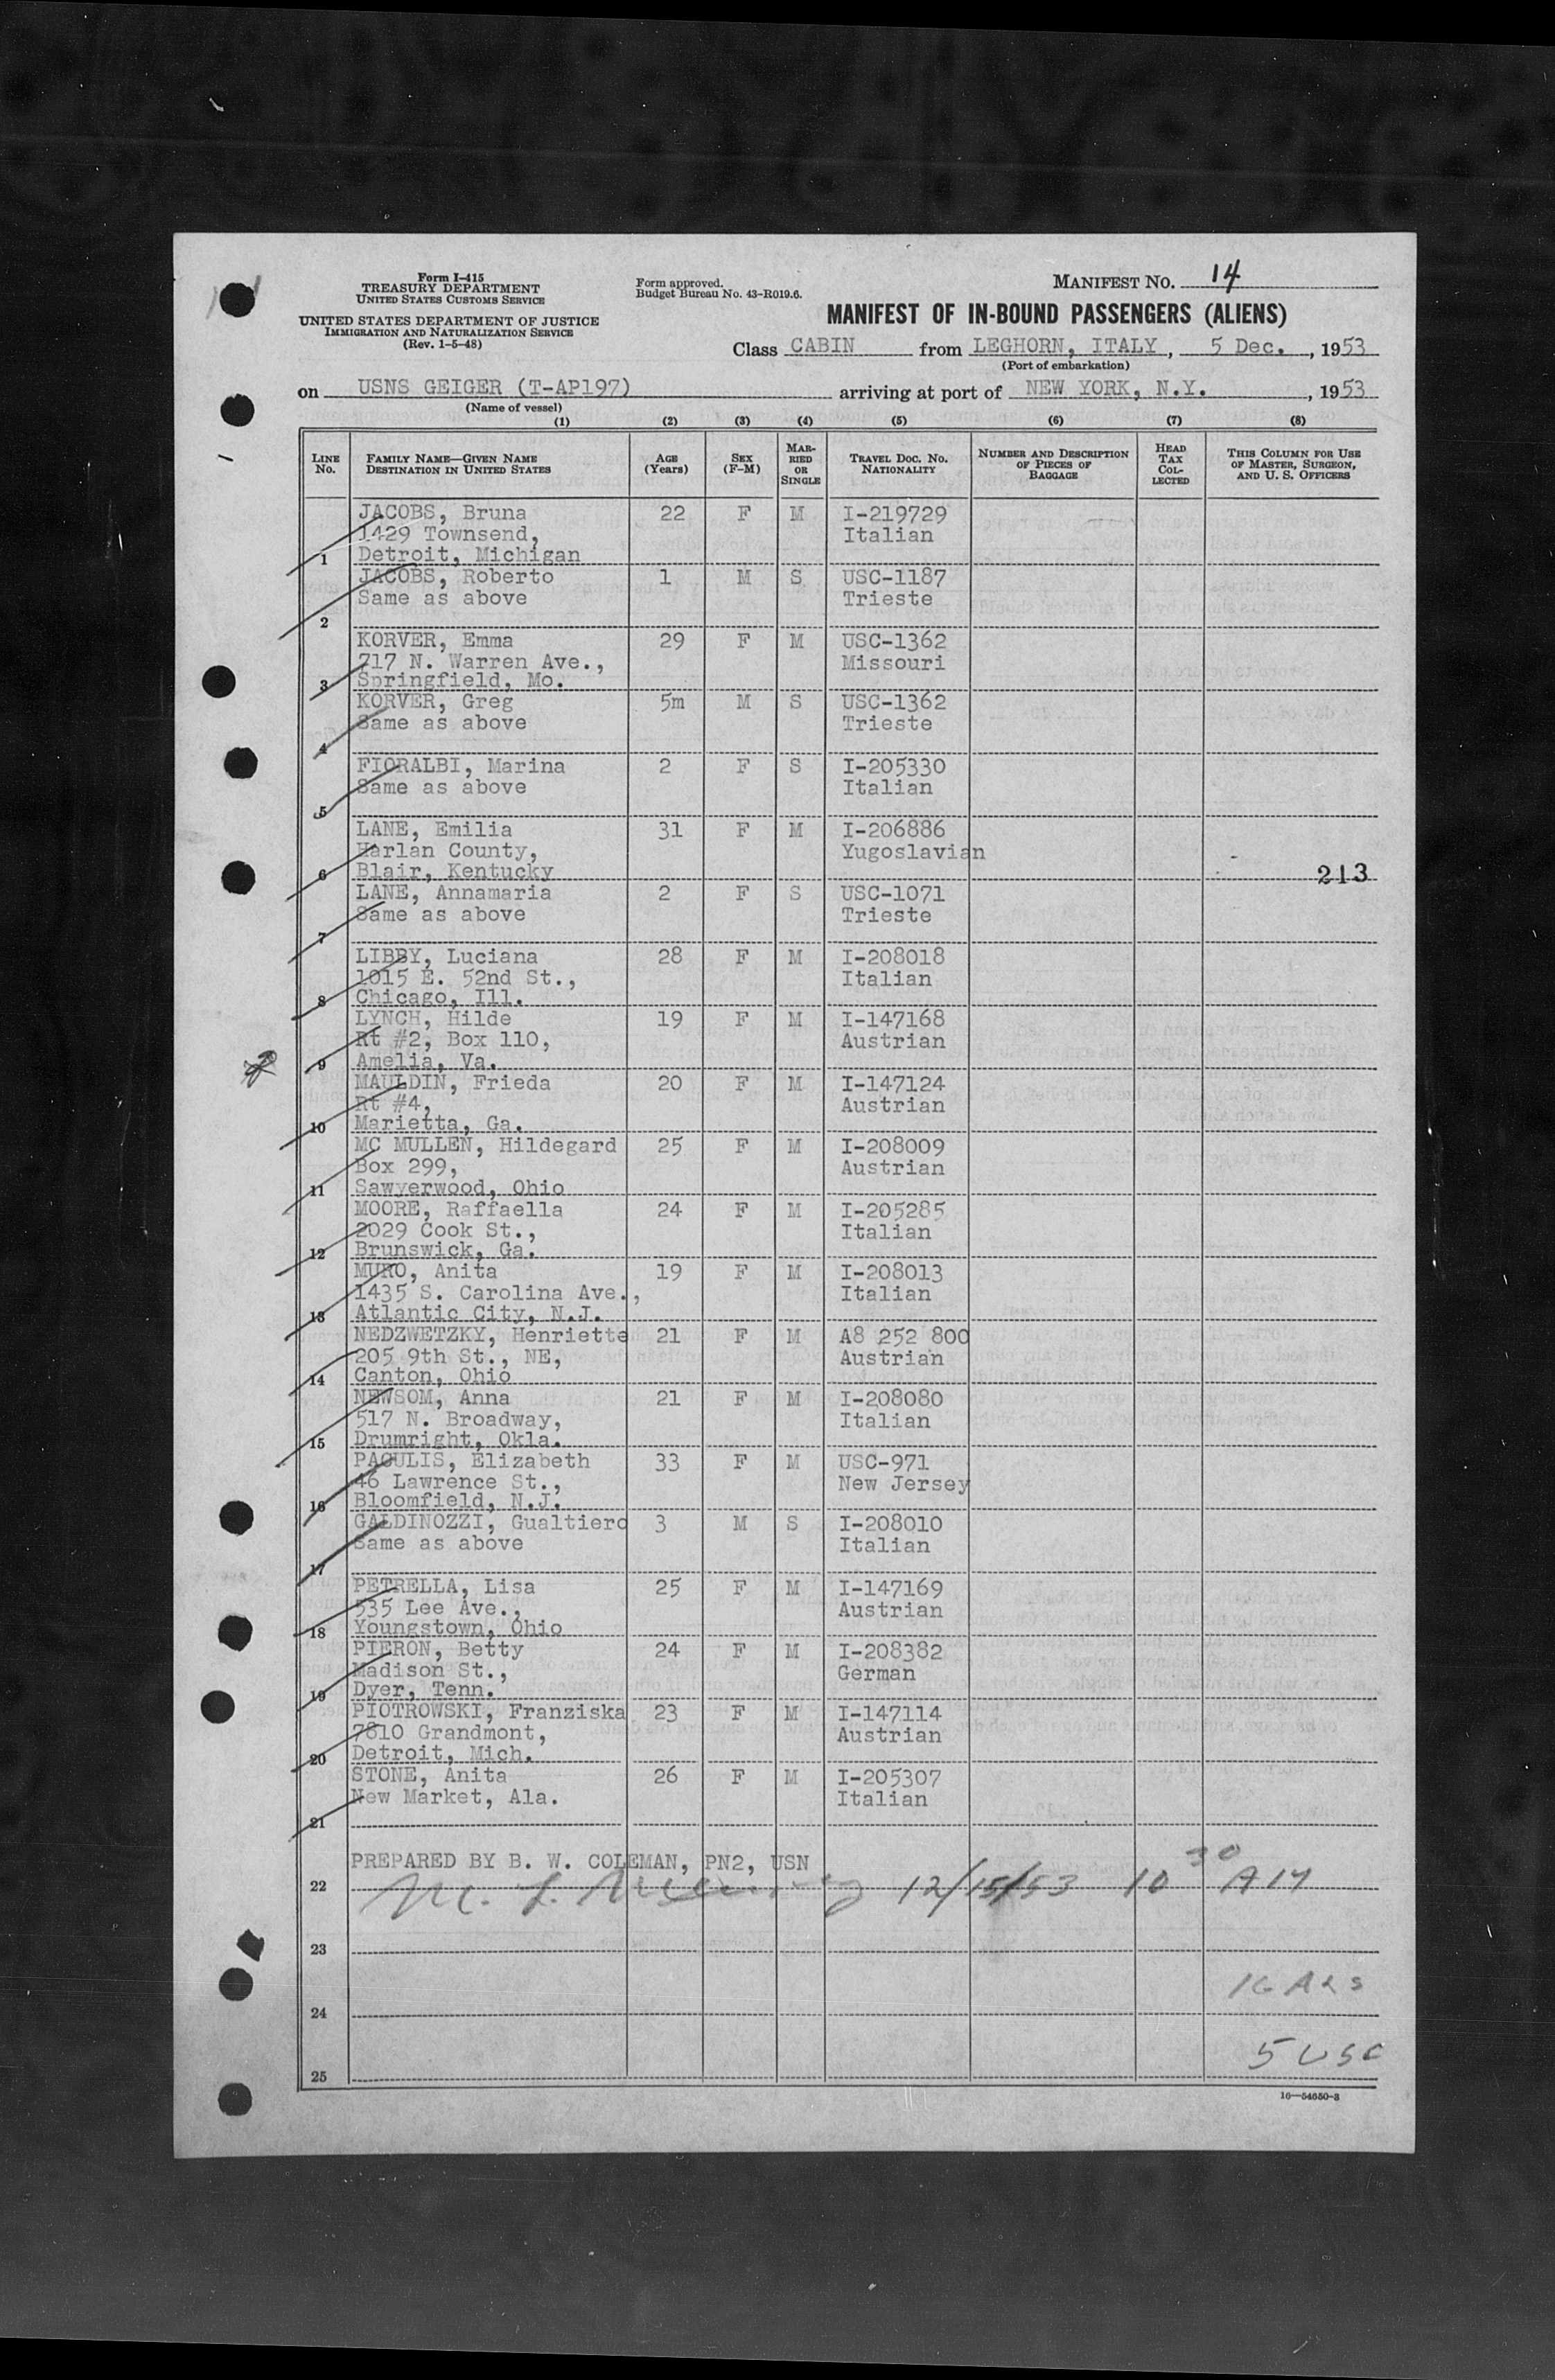 Form I-415
TREASURY DEPARTMENT
UNITED STATES CUSTOMS SERVICE
UNITED STATES DEPARTMENT OF JUSTICE
IMMIGRATION AND NATURALIZATION SERVICE
(Rev. 1-5-48)
Form approved.
Budget Bureau No. 43-R019.6.
MANIFEST NO. 14
MANIFEST OF IN-BOUND PASSENGERS (ALIENS)
Class CABIN from LEGHORN, ITALY, 5 Dec., 1953
(Port of embarkation)
on USNS GEIGER (T-AP197) arriving at port of NEW YORK, N.Y., 1953
(Name of vessel)
(1) (2) (3) (4) (5) (6) (7) (8)
LINE No. FAMILY NAME—GIVEN NAME DESTINATION IN UNITED STATES AGE (Years) SEX (F-M) MARRIED OR SINGLE TRAVEL DOC. NO. NATIONALITY NUMBER AND DESCRIPTION OF PIECES OF BAGGAGE HEAD TAX COLLECTED THIS COLUMN FOR USE OF MASTER, SURGEON, AND U. S. OFFICERS
JACOBS, Bruna 22 F M I-219729
1429 Townsend, Italian
1 Detroit, Michigan
JACOBS, Roberto 1 M S USC-1187
Same as above Trieste
2
KORVER, Emma 29 F M USC-1362
717 N. Warren Ave., Missouri
3 Springfield, Mo.
KORVER, Greg 5m M S USC-1362
Same as above Trieste
4
FIORALBI, Marina 2 F S I-205330
Same as above Italian
5
LANE, Emilia 31 F M I-206886
Harlan County, Yugoslavian
6 Blair, Kentucky 213
LANE, Annamaria 2 F S USC-1071
Same as above Trieste
7
LIBBY, Luciana 28 F M I-208018
1015 E. 52nd St., Italian
8 Chicago, Ill.
LYNCH, Hilde 19 F M I-147168
Rt #2, Box 110, Austrian
9 Amelia, Va.
MAULDIN, Frieda 20 F M I-147124
Rt #4, Austrian
10 Marietta, Ga.
MC MULLEN, Hildegard 25 F M I-208009
Box 299, Austrian
11 Sawyerwood, Ohio
MOORE, Raffaella 24 F M I-205285
2029 Cook St., Italian
12 Brunswick, Ga.
MURO, Anita 19 F M I-208013
1435 S. Carolina Ave., Italian
13 Atlantic City, N.J.
NEDZWETZKY, Henriette 21 F M A8 252 800
205 9th St., NE, Austrian
14 Canton, Ohio
NEWSOM, Anna 21 F M I-208080
517 N. Broadway, Italian
15 Drumright, Okla.
PAOULIS, Elizabeth 33 F M USC-971
46 Lawrence St., New Jersey
16 Bloomfield, N.J.
GALDINOZZI, Gualtiero 3 M S I-208010
Same as above Italian
17
PETRELLA, Lisa 25 F M I-147169
535 Lee Ave., Austrian
18 Youngstown, Ohio
PIERON, Betty 24 F M I-208382
Madison St., German
19 Dyer, Tenn.
PIOTROWSKI, Franziska 23 F M I-147114
7810 Grandmont, Austrian
20 Detroit, Mich.
STONE, Anita 26 F M I-205307
New Market, Ala. Italian
21
PREPARED BY B. W. COLEMAN, PN2, USN
22 12/15/53 10 30 AM
23
24
5 USC
25
16—54650-3